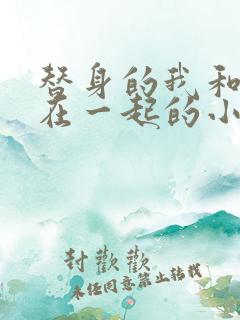 替身的我和
在一起的小
封歡歡
未經同意禁止轉載